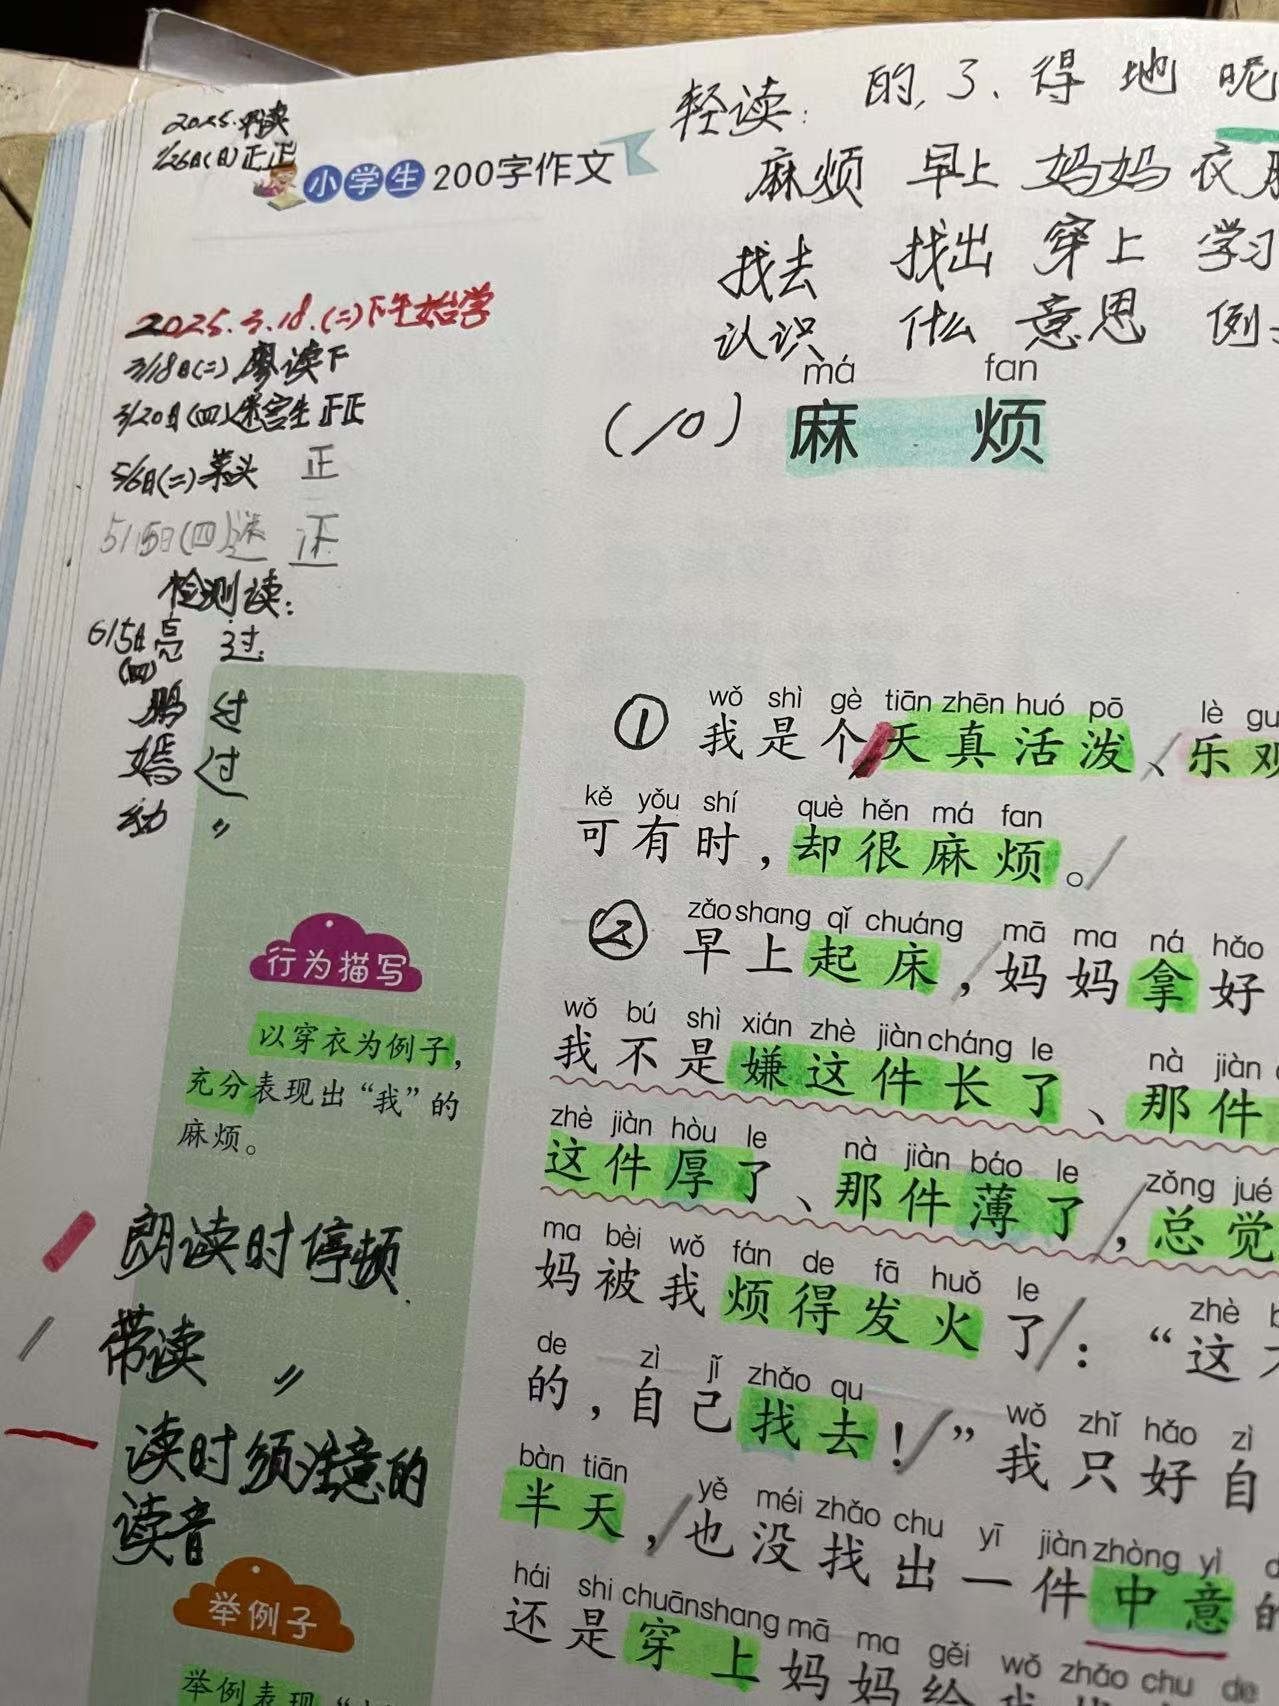 轻读：的，了、得 地 呢
2025.
1/26日(日)正正
小学生200字作文
麻烦 早上 妈妈 衣
找去 找出 穿上 学习
认识 什么 意思 例
2025.3.18.(二)下午始学
3/18日(二) 读下
3/20日(四) 正正
5/6日(二) 正
5/15日(四) 正
检测读：
6/5日亮 过
(四)
鹏 过
嫣 过
动 〃
má fan
(10) 麻烦
wǒ shì gè tiān zhēn huó pō lè gu
① 我是个天真活泼、乐观
kě yǒu shí què hěn má fan
可有时，却很麻烦。
zǎo shang qǐ chuáng mā ma ná hǎo
② 早上起床，妈妈拿好
wǒ bú shì xián zhè jiàn cháng le nà jiàn
我不是嫌这件长了、那件
zhè jiàn hòu le nà jiàn báo le zǒng jué
这件厚了、那件薄了，总觉
ma bèi wǒ fán de fā huǒ le zhè b
妈被我烦得发火了：“这
de zì jǐ zhǎo qu wǒ zhǐ hǎo zì
的，自己找去！”我只好自
bàn tiān yě méi zhǎo chu yī jiàn zhòng yì d
半天，也没找出一件中意的
hái shi chuān shang mā ma gěi wǒ zhǎo chu de
还是穿上妈妈给我
行为描写
以穿衣为例子，
充分表现出“我”的
麻烦。
朗读时停顿
带读 〃
读时须注意的
读音
举例子
举例表现“